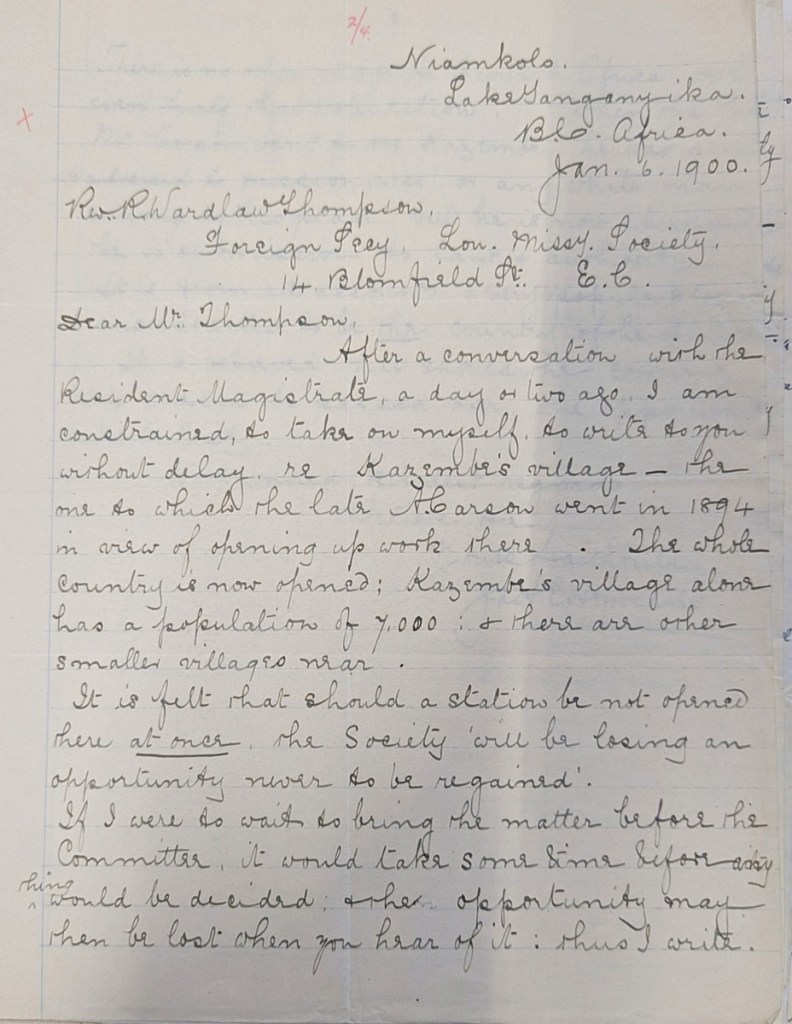 2/4.
Niamkolo.
Lake Tanganyika.
B.C. Africa.
Jan. 6. 1900.
x
Rev. R. Wardlaw Thompson,
Foreign Secy. Lon. Missy. Society.
14 Blomfield St. E.C.
Dear Mr. Thompson,
After a conversation with the
Resident Magistrate, a day or two ago, I am
constrained, to take on myself, to write to you
without delay, re Kazembe's village — the
one to which the late A. Carson went in 1894
in view of opening up work there. The whole
country is now opened; Kazembe's village alone
has a population of 7,000: & there are other
smaller villages near.
It is felt that should a station be not opened
there at once, the Society 'will be losing an
opportunity never to be regained'.
If I were to wait to bring the matter before the
Committee, it would take some time before any
thing
^ would be decided; & the opportunity may
then be lost when you hear of it: thus I write.